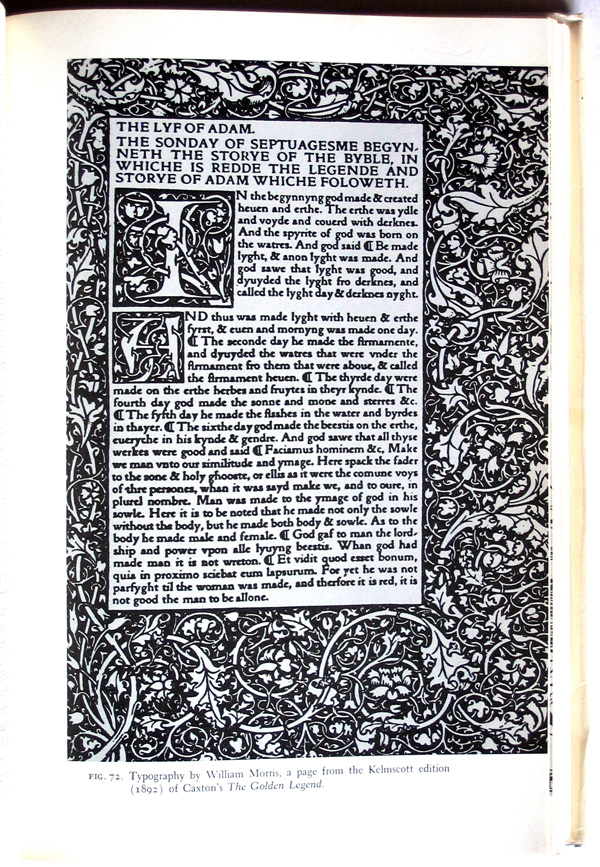 THE LYF OF ADAM.
THE SONDAY OF SEPTUAGESME BEGYN-
NETH THE STORYE OF THE BYBLE, IN
WHICHE IS REDDE THE LEGENDE AND
STORYE OF ADAM WHICHE FOLOWETH.
IN the begynnyng god made & created
heuen and erthe. The erthe was ydle
and voyde and couerd with derknes.
And the spyrite of god was born on
the watres. And god said ¶ Be made
lyght, & anon lyght was made. And
god sawe that lyght was good, and
dyuyded the lyght fro derknes, and
called the lyght day & derknes nyght.
AND thus was made lyght with heuen & erthe
fyrst, & euen and mornyng was made one day.
¶ The seconde day he made the firmamente,
and dyuyded the watres that were vnder the
firmament fro them that were aboue, & called
the firmament heuen. ¶ The thyrde day were
made on the erthe herbes and fruytes in theyr kynde. ¶ The
fourth day god made the sonne and mone and sterres &c.
¶ The fyfth day he made the fisshes in the water and byrdes
in thayer. ¶ The sixthe day god made the beestis on the erthe,
eueryche in his kynde & gendre. And god sawe that all thyse
werkes were good and said ¶ Faciamus hominem &c, Make
we man vnto our similitude and ymage. Here spack the fader
to the sone & holy ghooste, or ellis as it were the comune voys
of thre persones, whan it was sayd make we, and to oure, in
plurel nombre. Man was made to the ymage of god in his
sowle. Here it is to be noted that he made not only the sowle
without the body, but he made both body & sowle. As to the
body he made male and female. ¶ God gaf to man the lord-
ship and power vpon alle lyuyng beestis. Whan god had
made man it is not wreton. ¶ Et vidit quod esset bonum,
quia in proximo sciebat eum lapsurum. For yet he was not
parfyght til the woman was made, and therfore it is red, it is
not good the man to be allone.
FIG. 72. Typography by William Morris, a page from the Kelmscott edition
(1892) of Caxton's The Golden Legend.